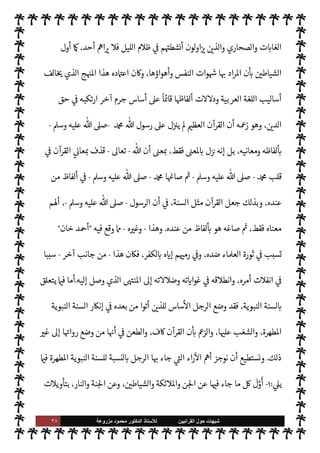 الغابات والصحاري والذين يزاولون أنشطتهم في ظلام الليل فلا يراهم أحد، كما أول
الشياطين بأن المراد بها شهوات النفس وأهواؤها، وكان اعتماده هذا المنهج الذي يخالف
أساليب اللغة العربية ودلالات ألفاظها قائماً على أساس جرم آخر ارتكبه في حق
الدين، وهو زعمه أن القرآن العظيم لم ينزل على رسول الله محمد -صلى الله عليه وسلم -
بألفاظه ومعانيه، بل إنه نزل بالمعنى فقط، بمعنى أن الله - تعالى - قذف بمعاني القرآن في
قلب محمد - صلى الله عليه وسلم - ثم صاغها محمد - صلى الله عليه وسلم - في ألفاظ من
عنده، وبذلك جعل القرآن مثل السنة، في أن الرسول - صلى الله عليه وسلم -، أُلهم
معناه فقط، ثم صاغه هو بألفاظ من عنده. وهذا - وغيره - مما وقع فيه "أحمد خان"
تسبب في ثورة العلماء ضده، وفي رميهم إياه بالكفر، فكان هذا - من جانب آخر - سببا
في انفلات أمره، وانطلاقه في غواياته وضلالاته إلى المنتهى الذي وصل إليه.أما فيما يتعلق
بالسنة النبوية، فقد وضع الرجل الأساس للذين أتوا من بعده في إنكار السنة النبوية
المطهرة، والشغب عليها، والزعم بأن القرآن كاف، والطعن في أنها من وضع رواتها إلى غير
ذلك. ونستطيع أن نوجز أهم الآراء التي جاء بها الرجل بالنسبة للسنة النبوية المطهرة فيما
يلي:١- أَوَّل كل ما جاء فيها عن الجن والملائكة والشياطين، وعن الجنة والنار، بتأويلات
شبهات حول القرآنيين للأستاذ الدكتور محمود مزروعة ٣٨